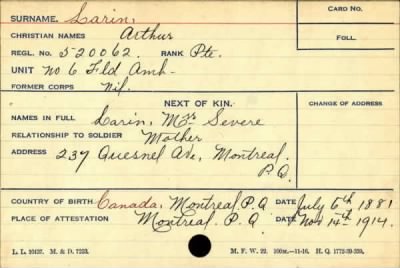 SURNAME. Larin, CARD No.
CHRISTIAN NAMES Arthur FOLL.
REGL. No. 520062. RANK Pte.
UNIT No 6 Fld Amb-
FORMER CORPS Nil.
NEXT OF KIN. CHANGE OF ADDRESS
NAMES IN FULL Larin, Mrs Severe
RELATIONSHIP TO SOLDIER Mother
ADDRESS 237 Quesnel Ave, Montreal.
P.Q.
COUNTRY OF BIRTH Canada, Montreal P.Q. DATE July 6th 1881
PLACE OF ATTESTATION Montreal. P.Q. DATE Nov 14th 1914.
L. L. 10437. M. & D. 7233. M. F. W. 22. 100M.-11-16. H. Q. 1772-39-339.